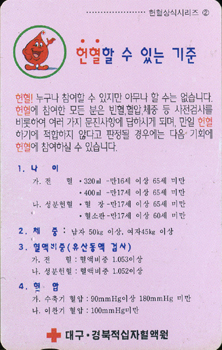 헌혈상식시리즈 ②
헌혈할 수 있는 기준
헌혈! 누구나 참여할 수 있지만 아무나 할 수는 없습니다.
헌혈에 참여한 모든 분은 빈혈,혈압,체중 등 사전검사를
비롯하여 여러 가지 문진사항에 답하시게 되며, 만일 헌혈
하기에 적합하지 않다고 판정될 경우에는 다음 기회에
헌혈에 참여하실 수 있습니다.
1. 나 이
가. 전 혈 · 320㎖ -만16세 이상 65세 미만
· 400㎖ -만17세 이상 65세 미만
나. 성분헌혈 · 혈 장 -만17세 이상 65세 미만
· 혈소판 -만17세 이상 60세 미만
2. 체 중 : 남자 50kg 이상, 여자45kg 이상
3. 혈액비중(유산동액 검사)
가. 전 혈 : 혈액비중 1.053이상
나. 성분헌혈 : 혈액비중 1.052이상
4. 혈 압
가. 수축기 혈압 : 90mmHg이상 180mmHg 미만
나. 이완기 혈압 : 100mmHg미만
대구·경북적십자혈액원